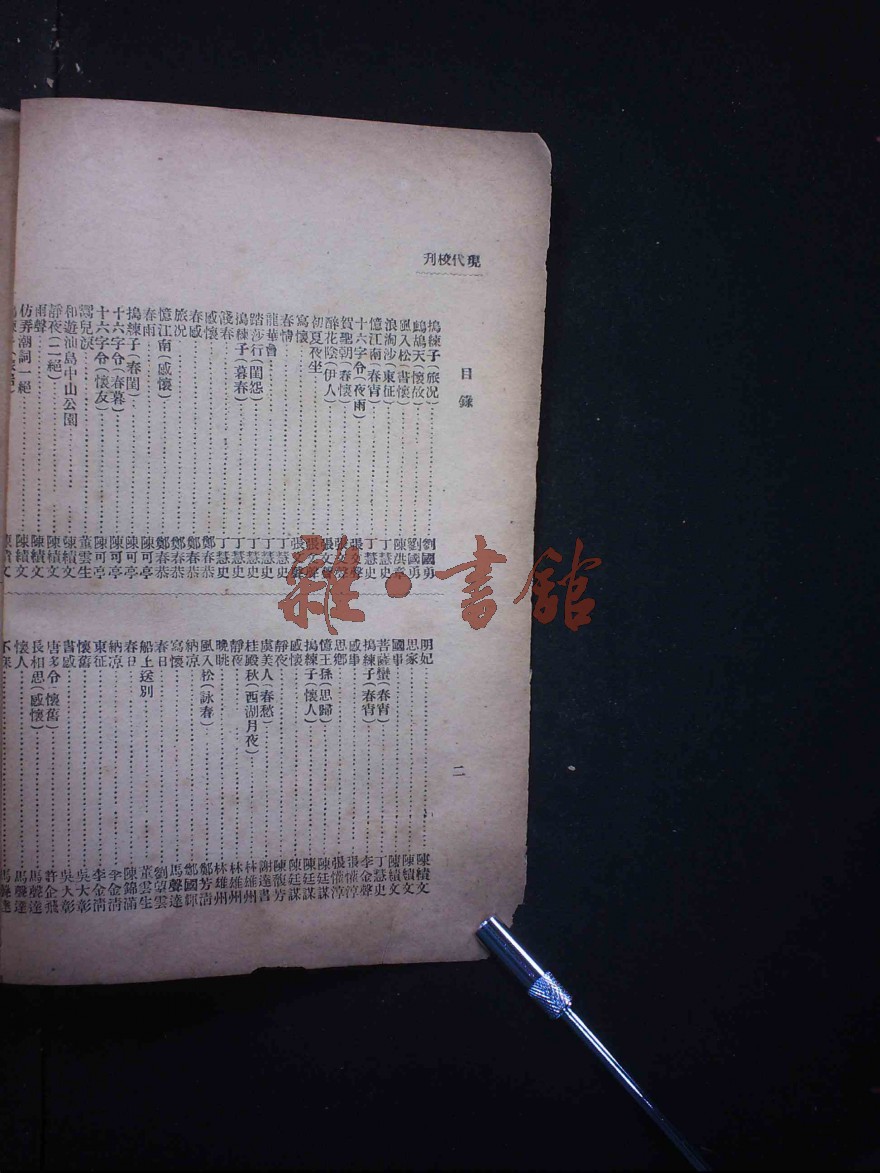 現代校刊
目錄
二
搗練子(旅况)劉國勇
鷓鴣天(懷故)劉國勇
風入松(書懷)陳洪章
浪淘沙(東征)丁慧史
憶江南(春宵)丁慧史
十六字令(夜雨)張文聲
賀聖朝(春懷)
醉花陰(伊人)
初夏夜坐
寫懷
春情
龍華會丁慧史
踏莎行(閨怨)丁慧史
搗練子(暮春)丁慧史
餞春丁慧史
感懷鄭春恭
春感鄭春恭
旅况鄭春恭
憶江南(感懷)鄭春恭
春雨陳可亭
搗練子(春閨)陳可亭
十六字令(春暮)陳可亭
十六字令(懷友)陳可亭
謬兒淚董雲生
和遊汕島中山公園陳績文
靜夜(二絕)陳績文
雨聲陳績文
仿弄潮詞一絕陳績文
明妃陳績文
思家陳績文
國事陳績文
菩薩蠻(春宵)丁慧史
搗練子(春宵)李金聲
感事張懽淳
思鄉張懽淳
憶王孫(思歸)陳廷謀
搗練子(懷人)陳廷謀
感懷陳廷謀
靜夜陳馥芳
虞美人(春愁)謝達書
桂殿秋(西湖月夜)林雄州
靜夜林雄州
晚眺林雄州
風入松(詠春)鄭芳清
納凉鄭國輝
寫懷馬聲達
春日劉望雲
船上送別董雲生
春日陳錦滿
納凉李金清
東征李金清
懷舊吳大彰
書感吳大彰
唐多令(懷舊)許企飛
長相思(感懷)馬聲達
懷人馬聲達
雜·書館